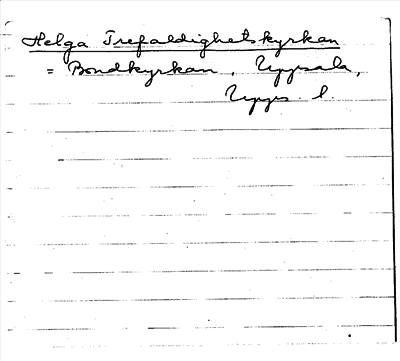 Helga Trefaldighetskyrkan
= Bondkyrkan, Uppsala,
Upps. l.